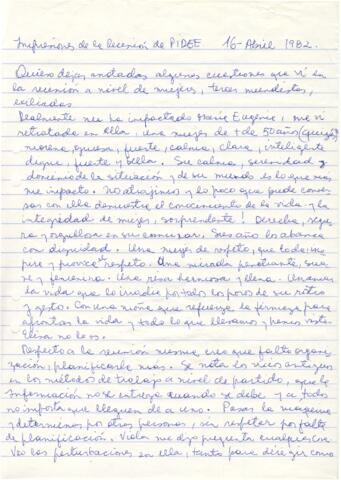 Impresiones de la reunión de PIDEE 16-Abril 1982.
Quiero dejar anotadas algunas cuestiones que vi en
la reunión a nivel de mujeres, terce mundistas,
exiliadas
Realmente me ha impactado María Eugenia, me vi
retratada en ella, una mujer de + de 50 años (quizás)
morena, gruesa, fuerte, calma, clara, inteligente
digna, fuerte y bella. Su calma, serenidad y
dominio de la situación y de su mundo es lo que más
me impacto. Nos atrajimos y lo poco que pude conver
sar con ella demuestra el conocimiento de la vida y la
integridad de mujer, sorprendente! Derecha, segu
ra y orgullosa en su caminar. Sus años los abarca
con dignidad. Una mujer de respeto, que todo ins
pire y provoca respeto. Una mirada penetrante, sua
ve y femenina. Una risa hermosa y llena.
la vida que lo irradia por todos los poros de su rostro
y gesto. Con un moño que refuerza la firmeza para
afrontar la vida y todo lo que llevamos y hemos visto.
Elisa no es.
Respecto a la reunión misma, creo que faltó organi
zación, planificarla más. Se nota los vicios antiguos
en los métodos de trabajo a nivel de partido, que la
información no se entrega cuando se debe y a todos
no importa que lleguen de a uno. Pasar la
y determinemos por otras personas, sin respetar por falta
de planificación. Viola me dijo pregunta cualquier cosa
Veo las perturbaciones en ella, tanto para dirigir como